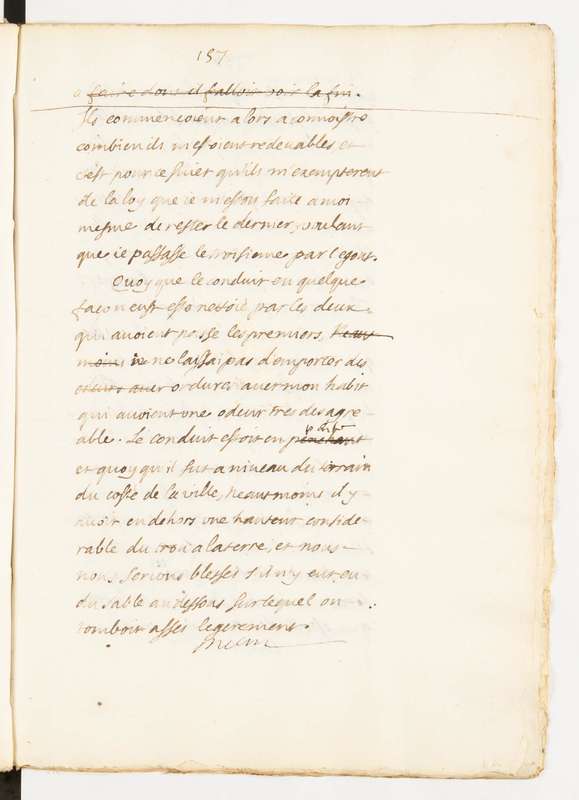 157
affaire dont il falloit voir la fin.
Ils commencoient alors a connoistre
combien ils m'estoient redeuables et
c'est pour ce suiet qu'ils m'exempterent
de la loy que ie m'estois faite a moi
mesme de rester le dernier, voulant
que ie passasse le troisieme par l'egout.
Quoyque le conduit en quelque
facon eust esté nettoié par les deux
qui auoient passé les premiers, neant
moins ie ne laissai pas d'emporter des
auec ordures auec mon habit
qui auoient vne odeur tres desagre
able. Le conduit estoit en penchant
et quoy qu'il fut a niueau du terrain
du costé de la ville, neantmoins il y
auoit en dehors vne hauteur conside
rable du trou a la terre, et nous
nous serions blessés s'il n'y eut eu
du sable au dessous sur lequel on
tomboit assés legerement.